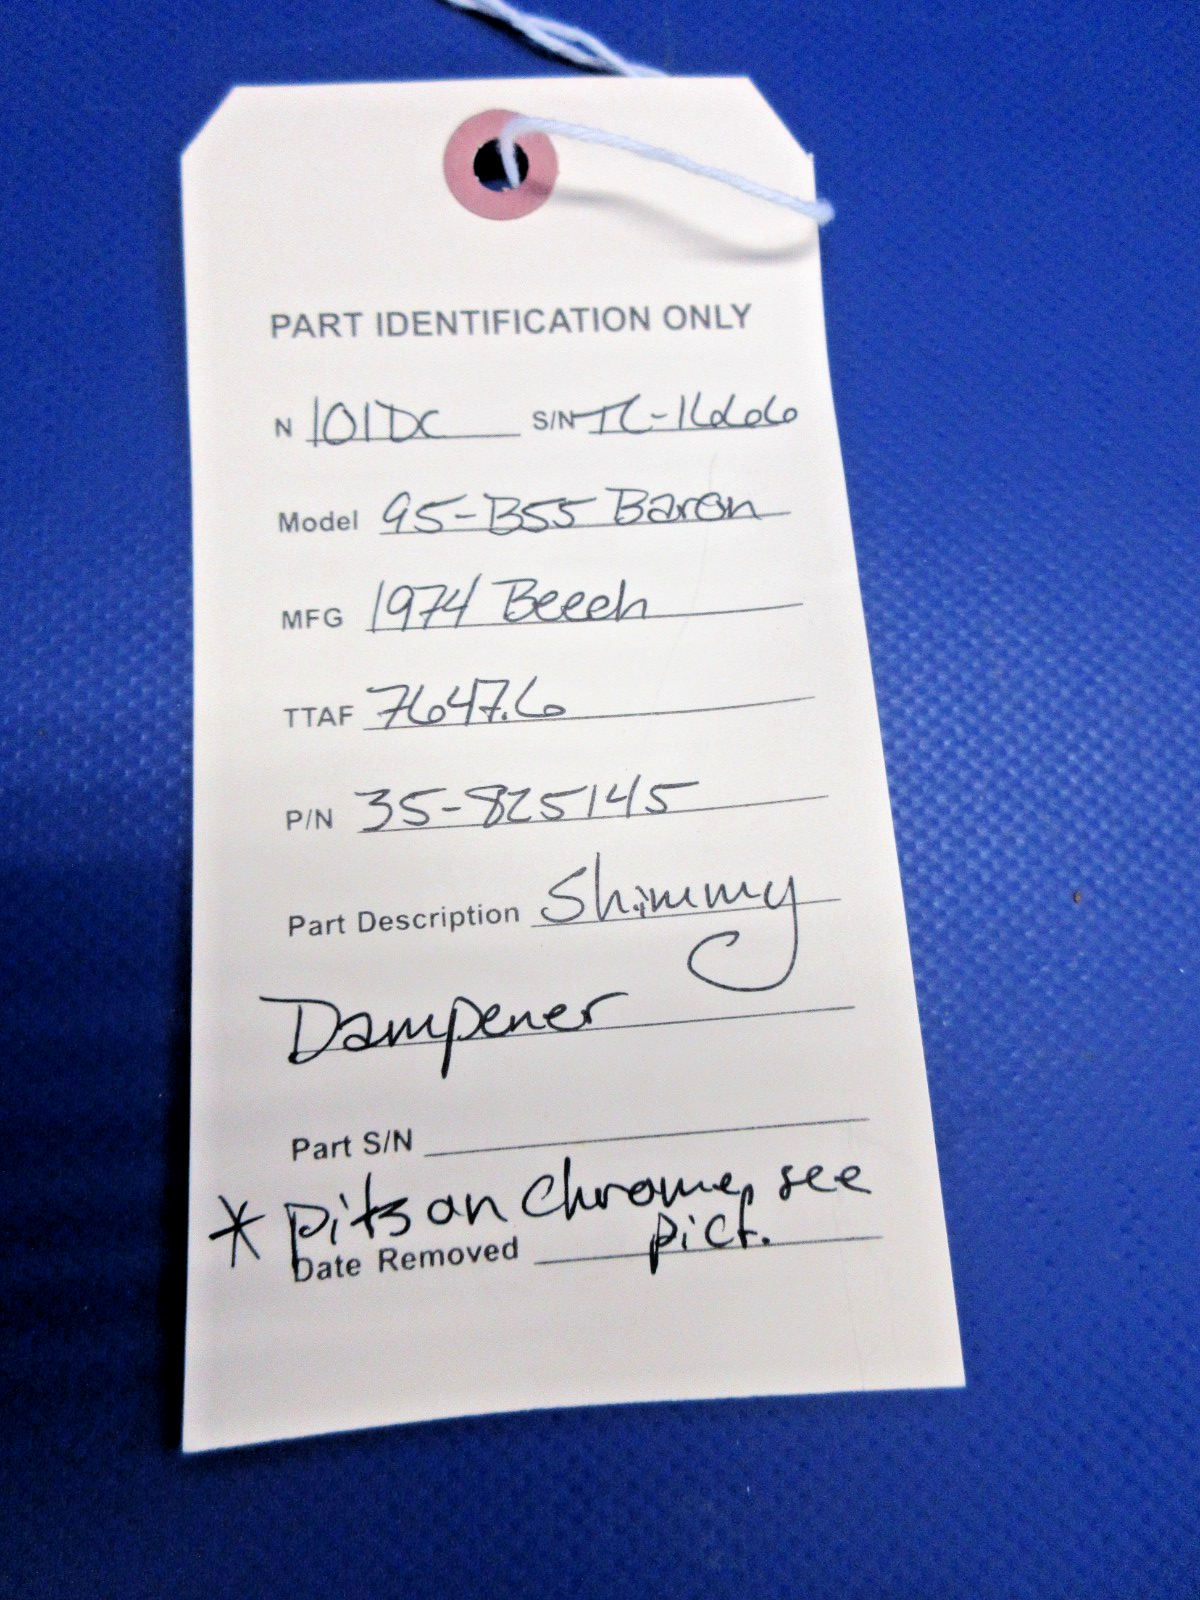 PART IDENTIFICATION ONLY
N 101DC S/N TC-1666
Model 95-B55 Baron
MFG 1974 Beech
TTAF 7647.6
P/N 35-825145
Part Description Shimmy
Dampener
Part S/N
* pits on chrome, see
pict.
Date Removed